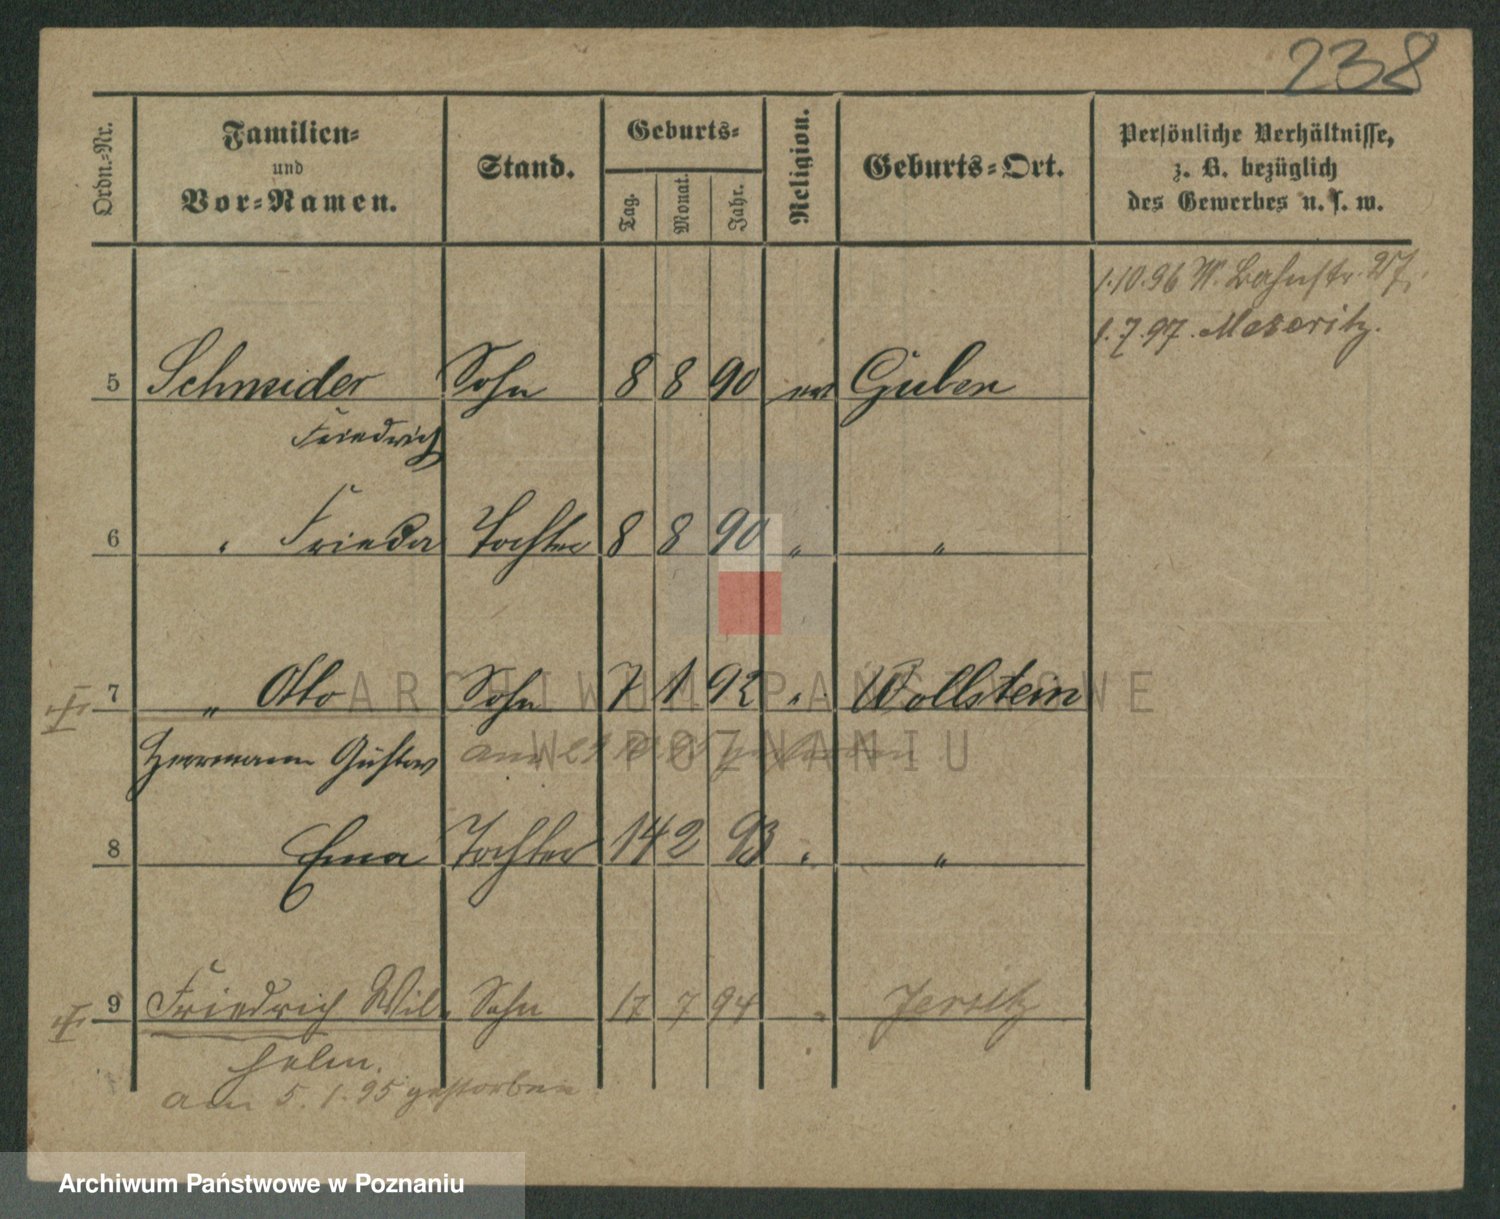 238
Ordn.-Nr.
Familien-
und
Vor-Namen.
Stand.
Geburts-
Tag.
Monat.
Jahr.
Religion.
Geburts-Ort.
Persönliche Verhältnisse,
z. B. bezüglich
des Gewerbes u. s. w.
1.10.96 W. Bahnstr.
1.7.97. Meseritz.
5 Schneider Sohn 8 8 90 ev Guben
Friedrich
6 " Frieda Tochter 8 8 90 " "
7 " Otto Sohn 7 1 92 " Wollstein
Herrmann Gustav am gestorben
8 Ema Tochter 14 2 93 " "
9 Friedrich Wil- Sohn 17 7 94 " Jersitz
helm.
am 5.1.95 gestorben
ARCHIWUM PAŃSTWOWE
W POZNANIU
Archiwum Państwowe w Poznaniu